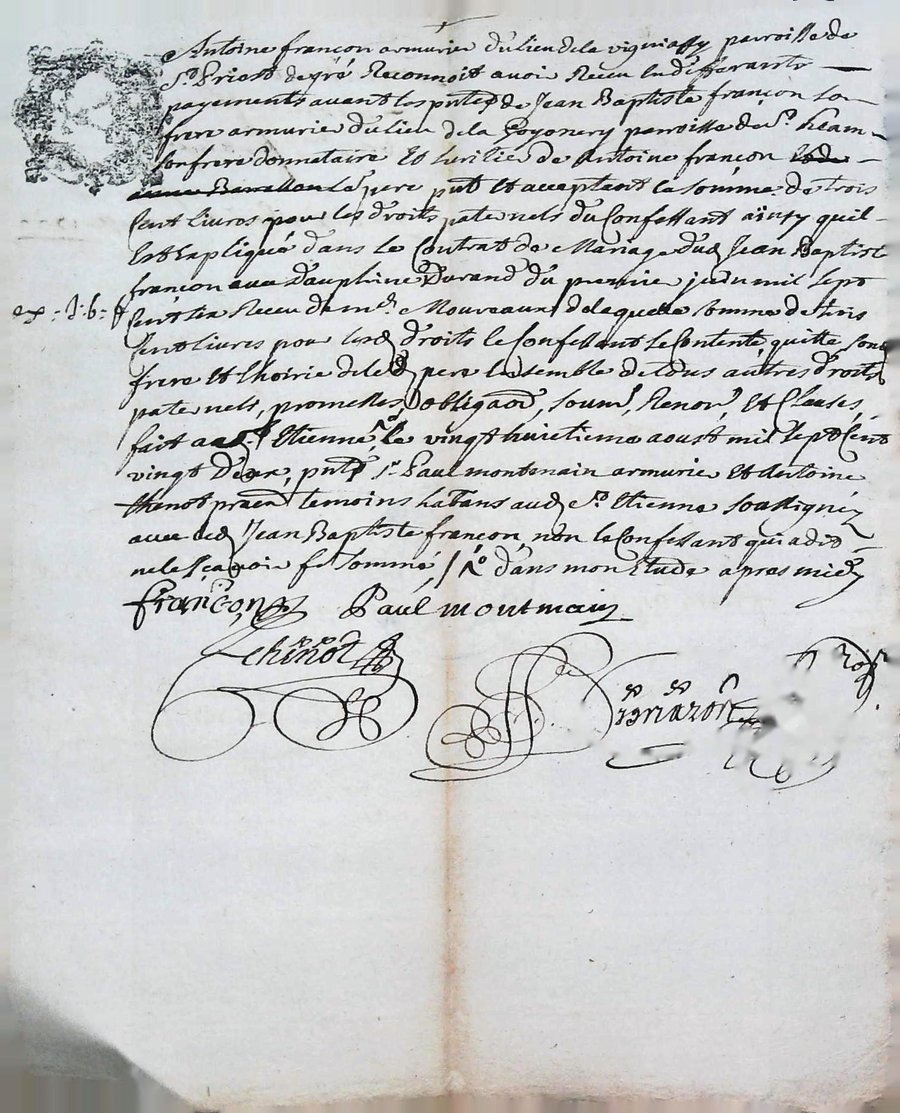 Antoine françon armurier du lieu de la parroisse de
St. Priest de gré Reconnoit avoir Receu en differants
payements avant les pntes de Jean Baptiste françon son
frere armurie du lieu de la Goyonery parroisse de St. heam
son frere donnataire Et heritie de Antoine françon
pere pnt Et acceptant la somme de trois
Cent livres pour les droits paternels du Confessant ainsy quil
Est Expliqué dans le Contrat de Mariage dud Jean Baptiste
françon avec Dauphine Durand du premie juin mil sept
Cent Receu de me. de laquelle somme de trois
Cent livres pour lesd droits le Confessant se Contente quitte sond
frere Et lhoirie de led pere Ensemble de tous autres droits
paternels, promesses, obligaon, soum, Renon, Et Clauses,
fait a St. Etienne, le vingt huictieme aoust mil sept Cent
vingt deux, pnts sr. Paul montmain armurie Et Antoine
thenot temoins habans aud St. Etienne soussignéz
avec led Jean Baptiste françon, non le Confessant qui a dit
ne le sçavoir fe sommé / dans mon Etude apres midy
françon Paul montmain
thenot